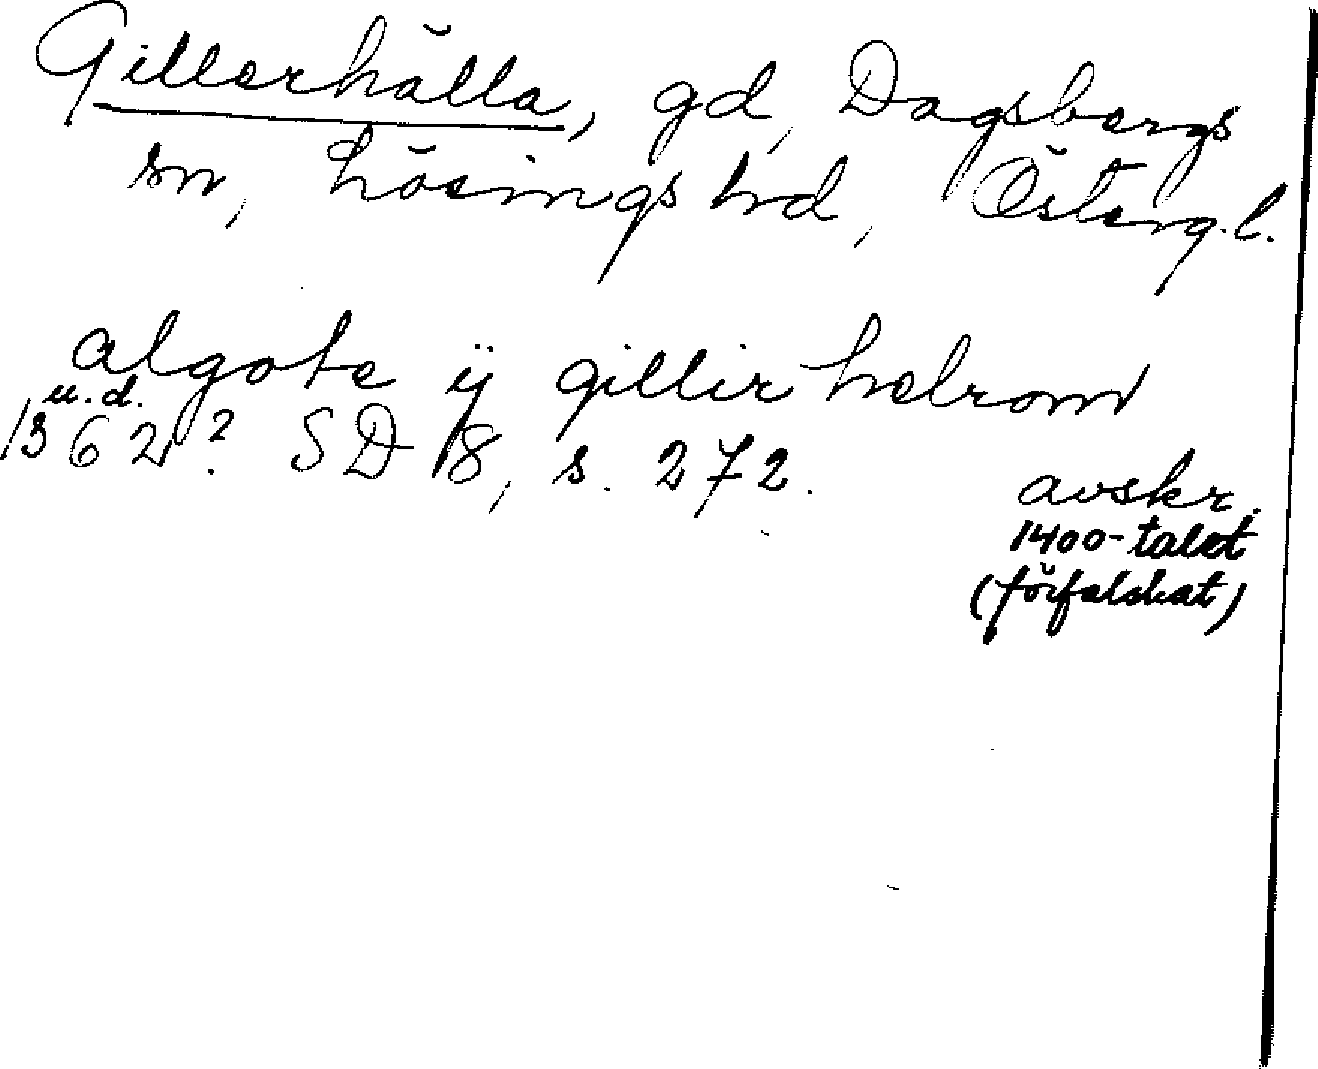 Gillerhälla, gd, Dagsbergs
sn, Lösings hd, Österg.l.
algote ÿ gillir helrom
u.d.
1362? SD 8, s. 272.
avskr.
1400-talet
(förfalskat)